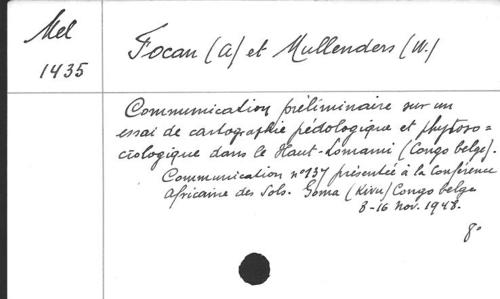 Mel
1435
Focan (A) et Mullenders (W.)
Communication préliminaire sur un
essai de cartographie pédologique et phytoso=
ciologique dans le Haut-Lomami (Congo belge).
Communication n° 137 présentée à la Conférence
Africaine des Sols. Goma (Kivu) Congo belge
8-16 Nov. 1948.
8°